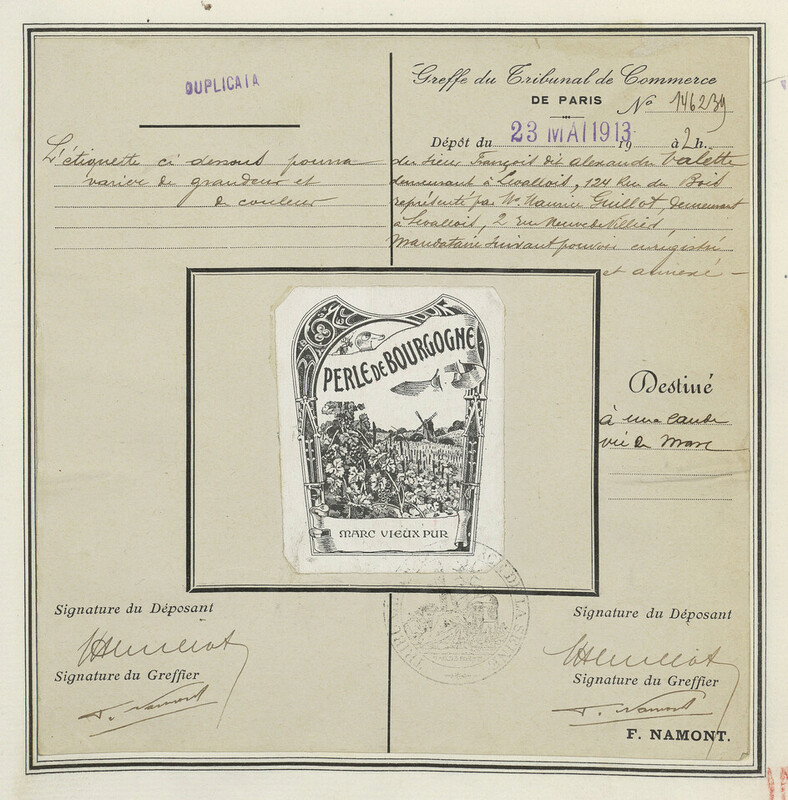 DUPLICATA
L'étiquette ci dessous pourra
varier de grandeur et
de couleur
Greffe du Tribunal de Commerce
DE PARIS No 146239
Dépôt du 23 MAI 1913 19 à 2 h.
du sieur François dit Alexandre Valette
demeurant à Levallois, 124 Rue du Bois
représenté par Mr. Maurice Guillot, demeurant
à Levallois, 2 Rue Neuve de Villiers,
Mandataire suivant pouvoir enregistré
et annexé
PERLE DE BOURGOGNE
MARC VIEUX PUR
Destiné
à une eau de
vie de Marc
DE LA SEINE
Signature du Déposant
Signature du Greffier
F. Namont
Signature du Déposant
Signature du Greffier
F. Namont
F. NAMONT.